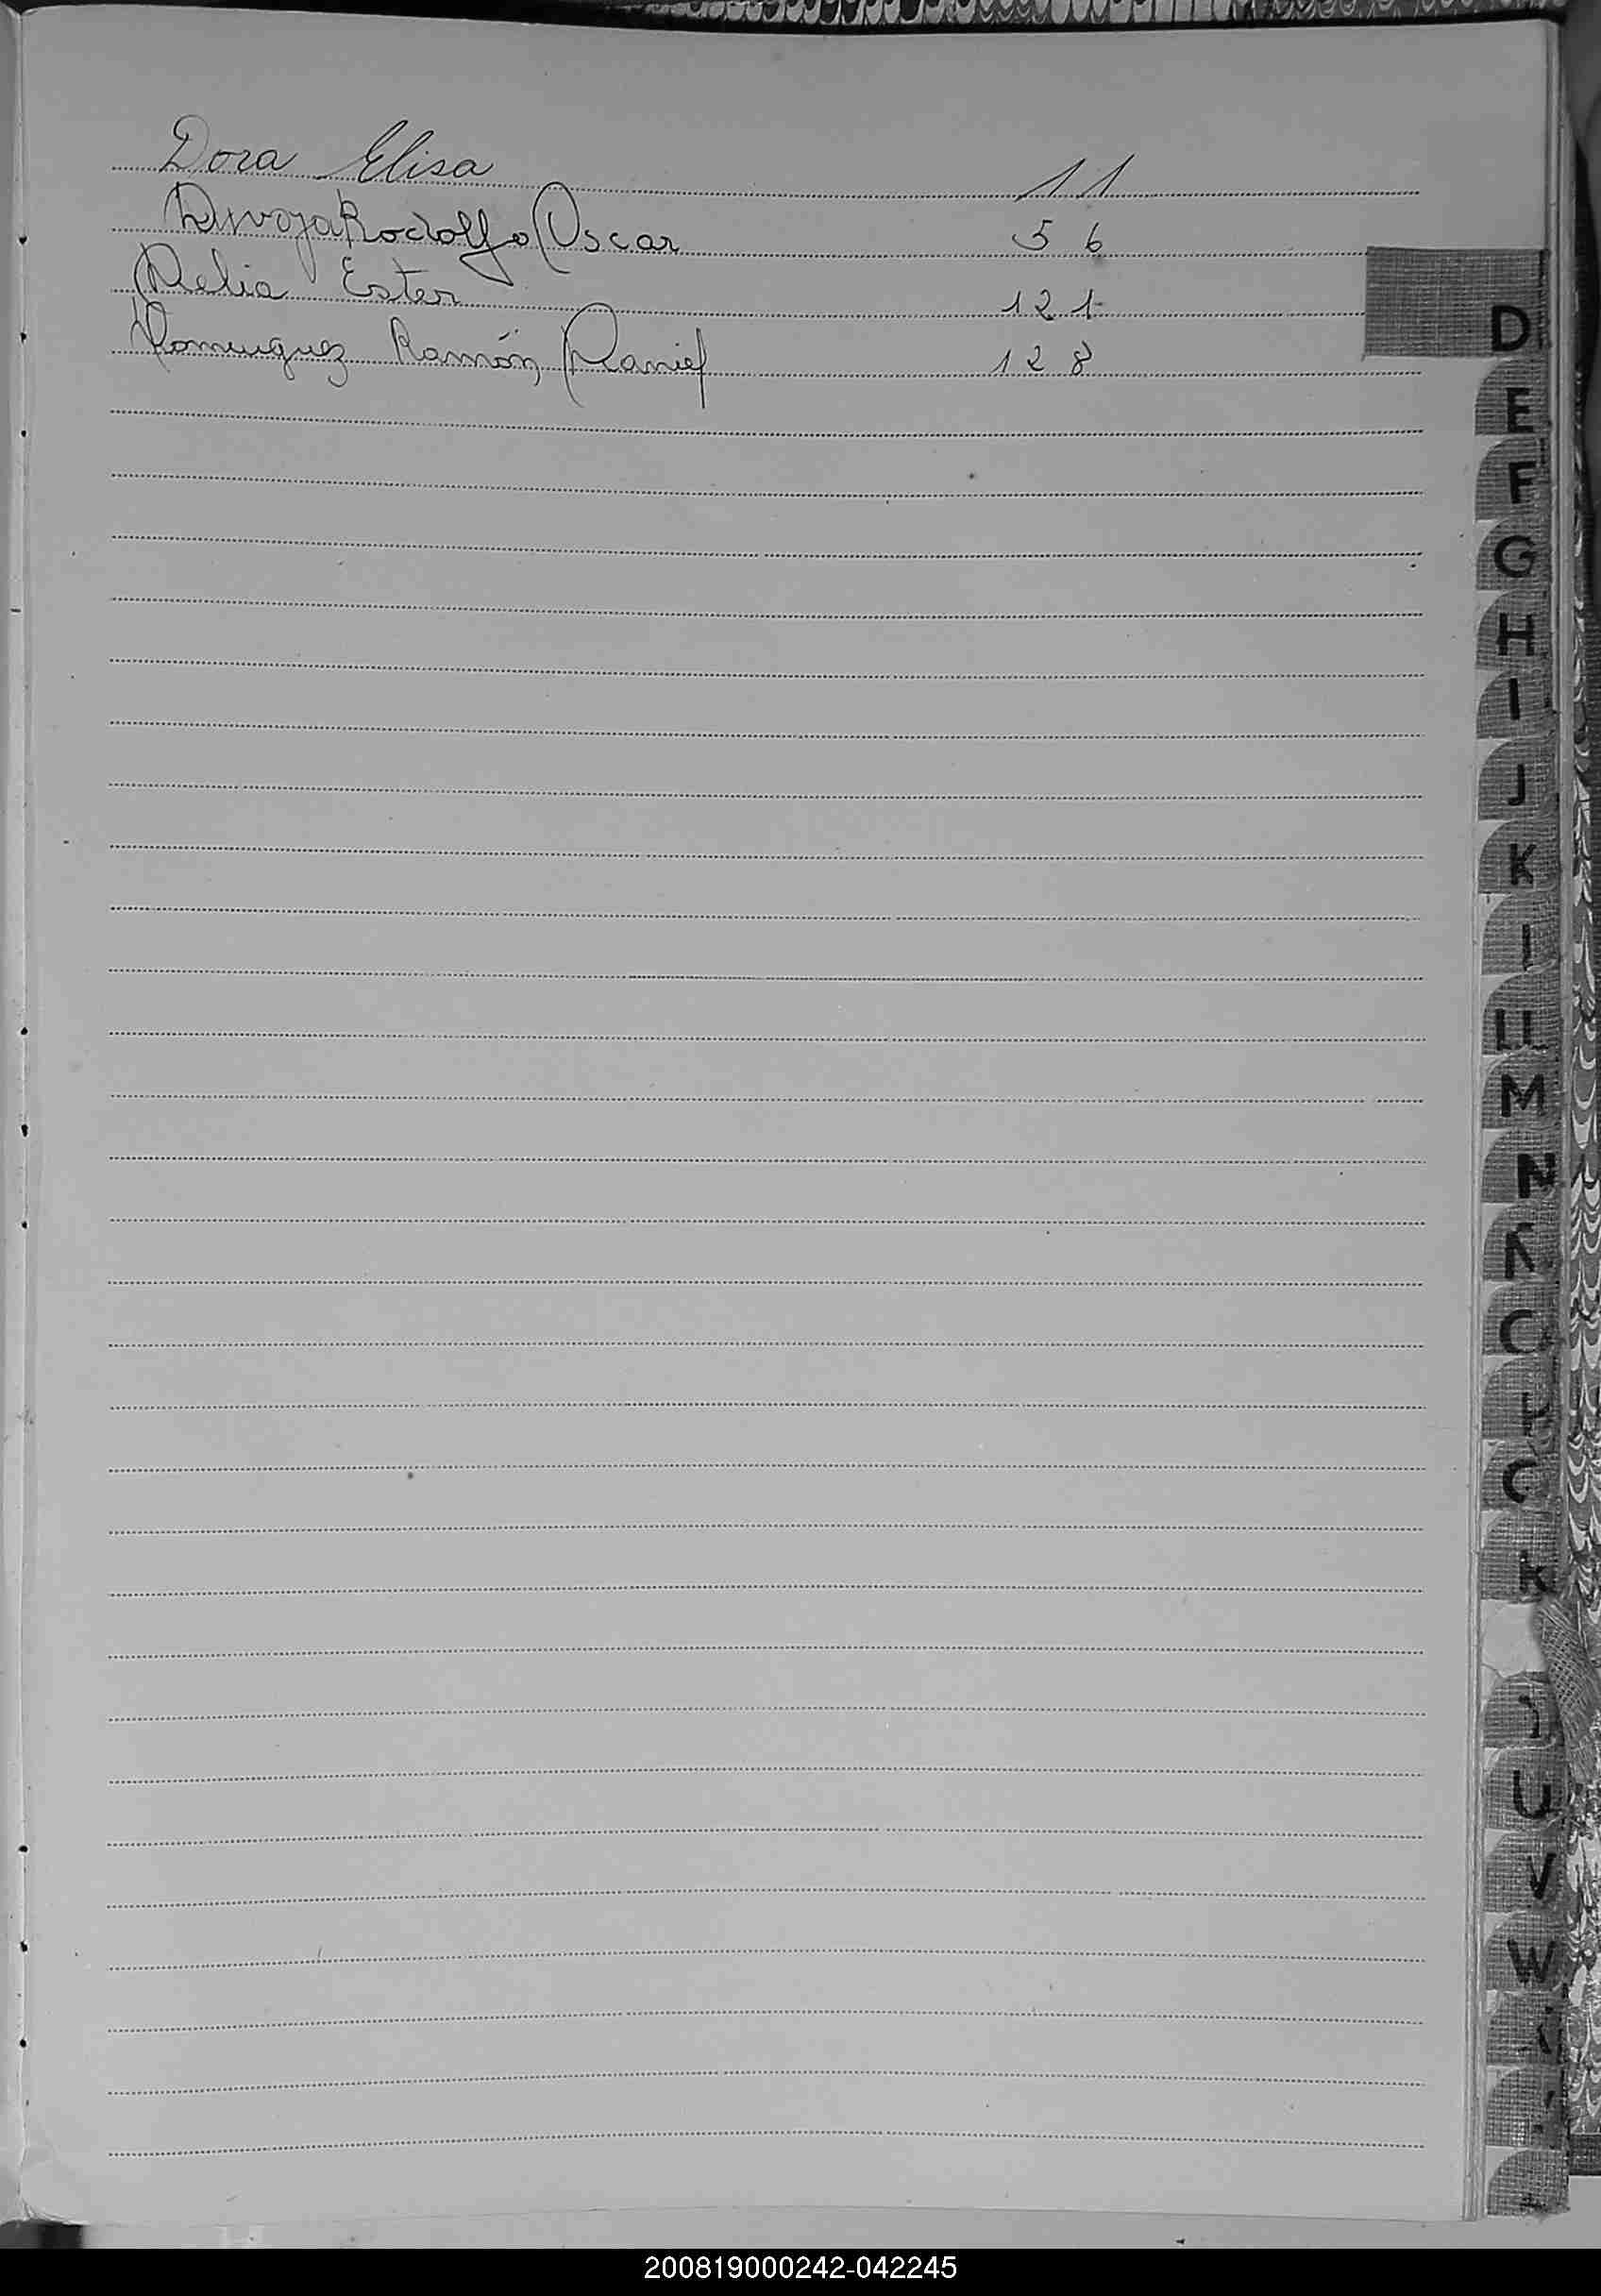 Dora Elisa 11
Rodolfo Oscar 56
Delia Ester 121
Dominguez Ramón Daniel 128
D
E
F
G
H
I
J
K
M
N
U
V
W
200819000242-042245